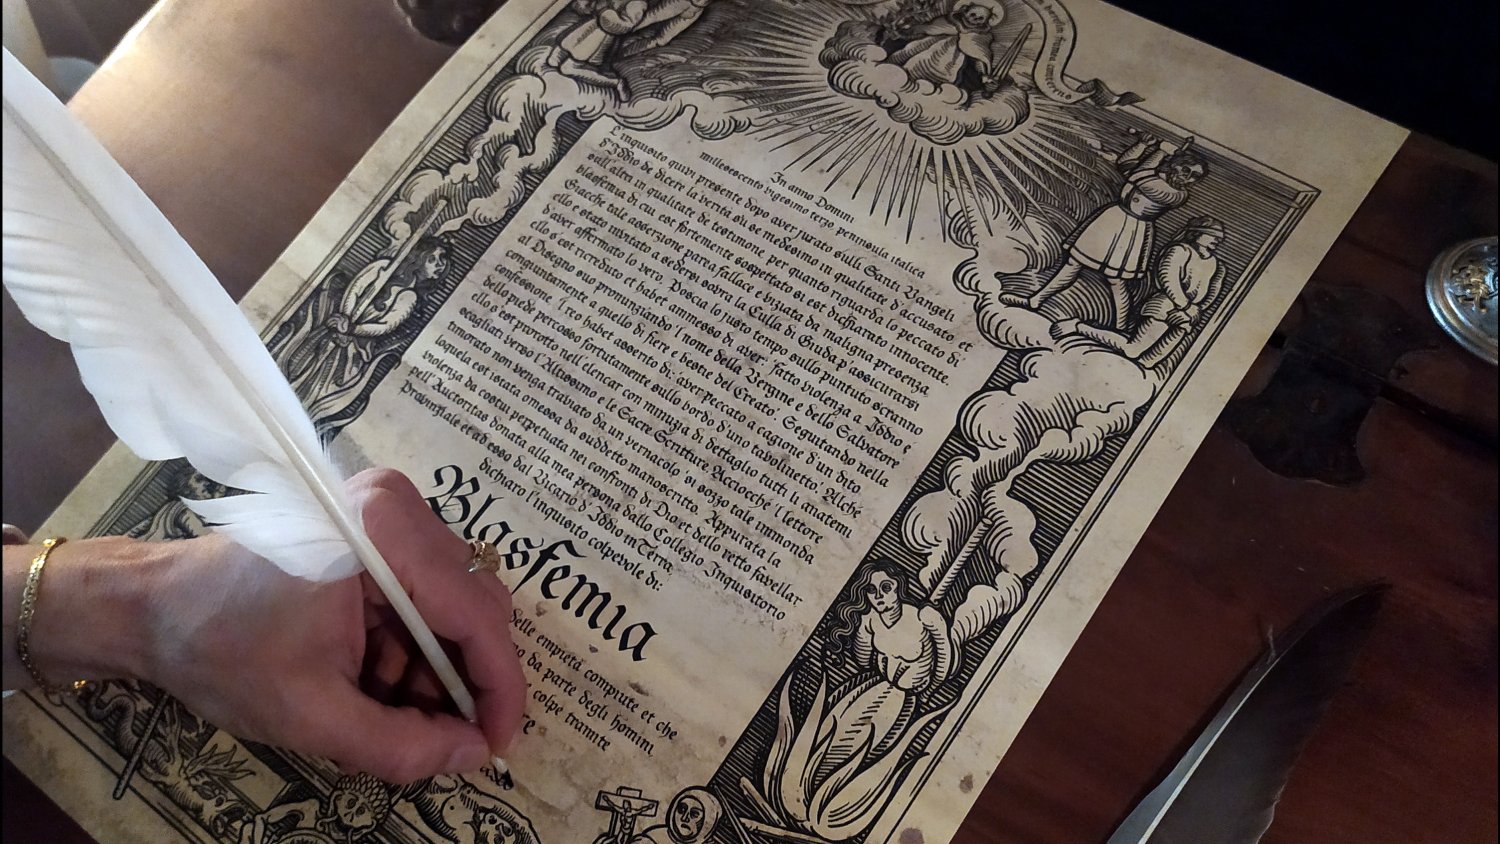 In anno Domini
milesescento vigesimo terzo peninsula italica
L'inquisito quivi presente dopo aver jurato sulli Santi Vangeli
d'Iddio de dicere la verità su se medesimo in qualitate d'accusato et
sull'altri in qualitate de testimone, per quanto riguarda lo peccato di
blasfemia di cui est fortemente sospettato si est dichiarato innocente.
Giacche tale asserzione parea fallace e viziata da maligna presenza
ello e stato invitato a sedersi sovra la Culla di Giuda p'assicurarsi
d'aver affermato lo vero. Poscia lo justo tempo sullo puntuto scranno
ello s'est ricreduto et habet ammesso di aver fatto violenza a Iddio e
al Disegno suo pronunziando 'l nome della Vergine e dello Salvatore
congiuntamente a quello di fiere e bestie del Creato. Seguitando nella
confessione 'l reo habet asserito di aver peccato a cagione d'un dito
della piede percosso fortuitamente sullo bordo d'uno tavolinetto. Alché
ello s'est prorotto nell'elencar con minuzia di dettaglio tutti li anatemi
scagliati verso l'Altissimo e le Sacre Scritture. Acciocché 'l lettore
timorato non venga traviato da un vernacolo sì sozzo tale immonda
loquela est istata omessa da suddetto manoscritto. Appurata la
violenza da costui perpetuata nei confronti di Dio et dello retto favellar
pell'Auctoritas donata alla mea persona dallo Collegio Inquisitorio
Provinziale et ad esso dal Vicario d'Iddio in Terra
dichiaro l'inquisito colpevole di:
Blasfemia
delle empietà compiute et che
da parte degli homini
colpe tramite